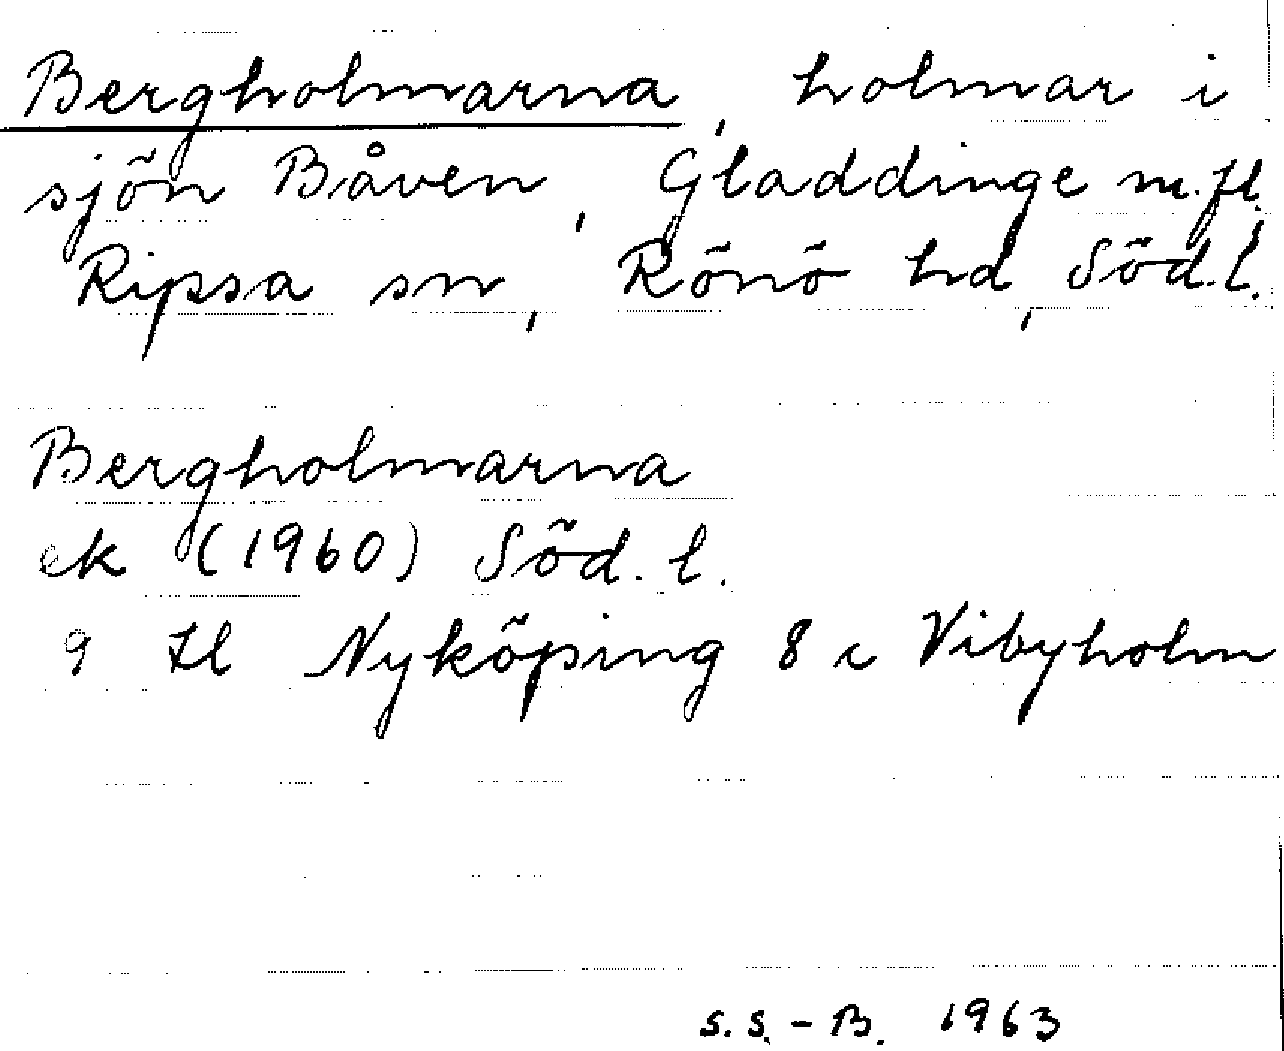 Bergholmarna, holmar i
sjön Båven, Gladdinge m.fl.,
Ripsa sn, Rönö hd, Söd.l.
Bergholmarna
ek (1960) Söd. l.
9 II Nyköping 8 c Vibyholm
S.S.-B. 1963